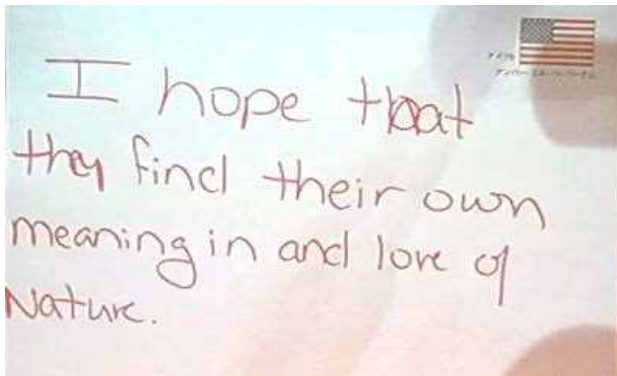 I hope that
they find their own
meaning in and love of
Nature.
アメリカ